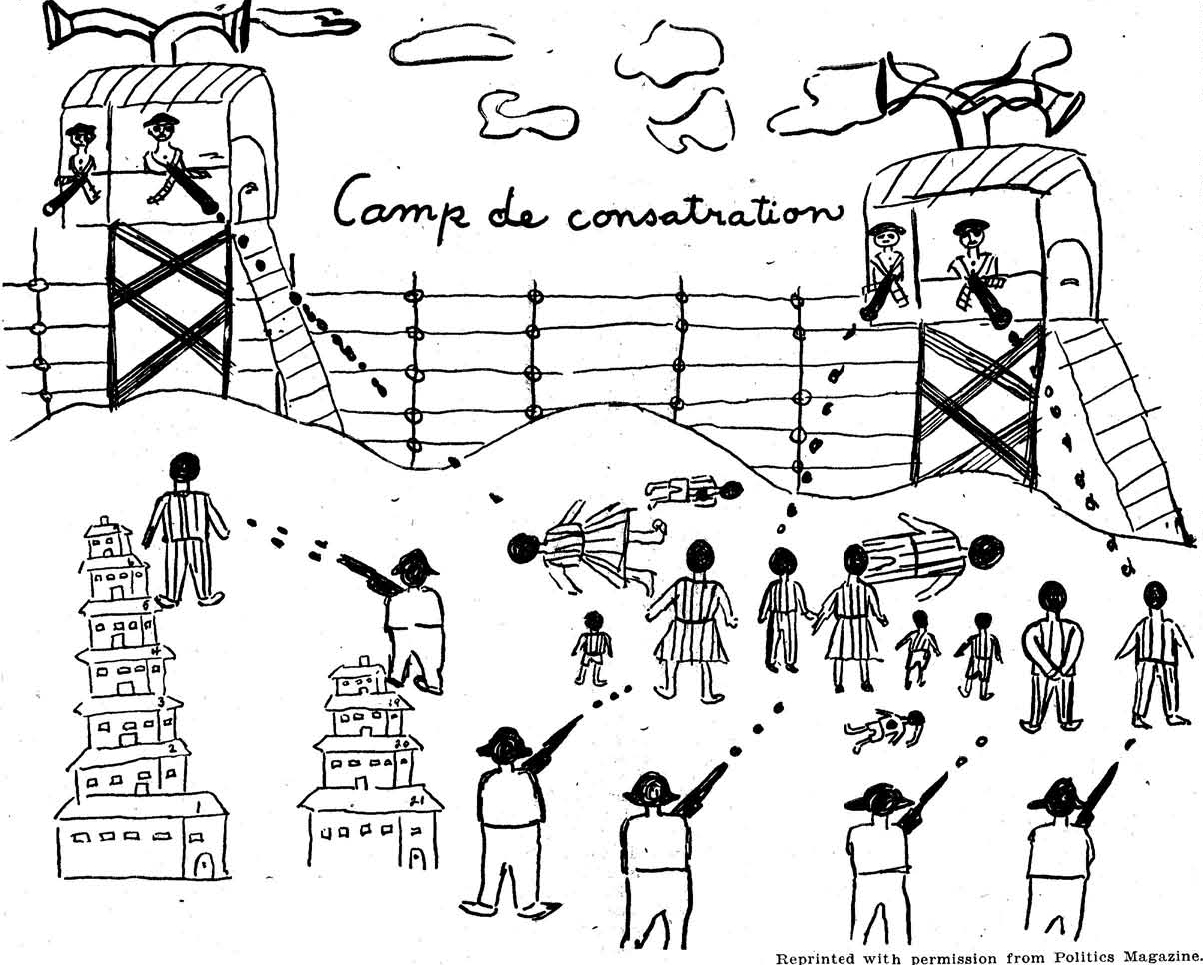 Camp de consatration
6
5
4
3
2
1
19
20
21
Reprinted with permission from Politics Magazine.